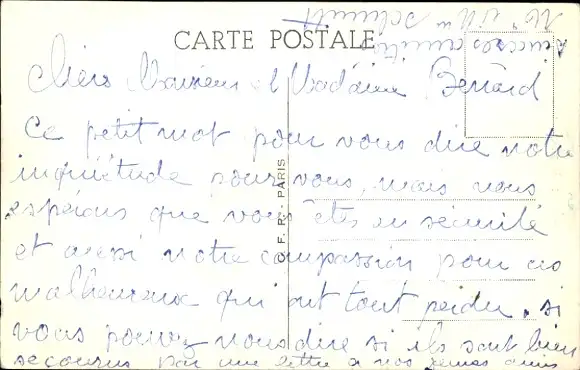 CARTE POSTALE
Chers Monsieur et Madame Benard
Ce petit mot pour vous dire notre
inquiétude pour vous, mais nous
espérons que vous êtes en sécurité
et aussi notre compassion pour ces
malheureux qui ont tout perdu, si
vous pouvez nous dire si ils sont bien
secourus par une lettre a nos
C.F.R. - PARIS
sincères amitiés
Mr et Mme Schmitt